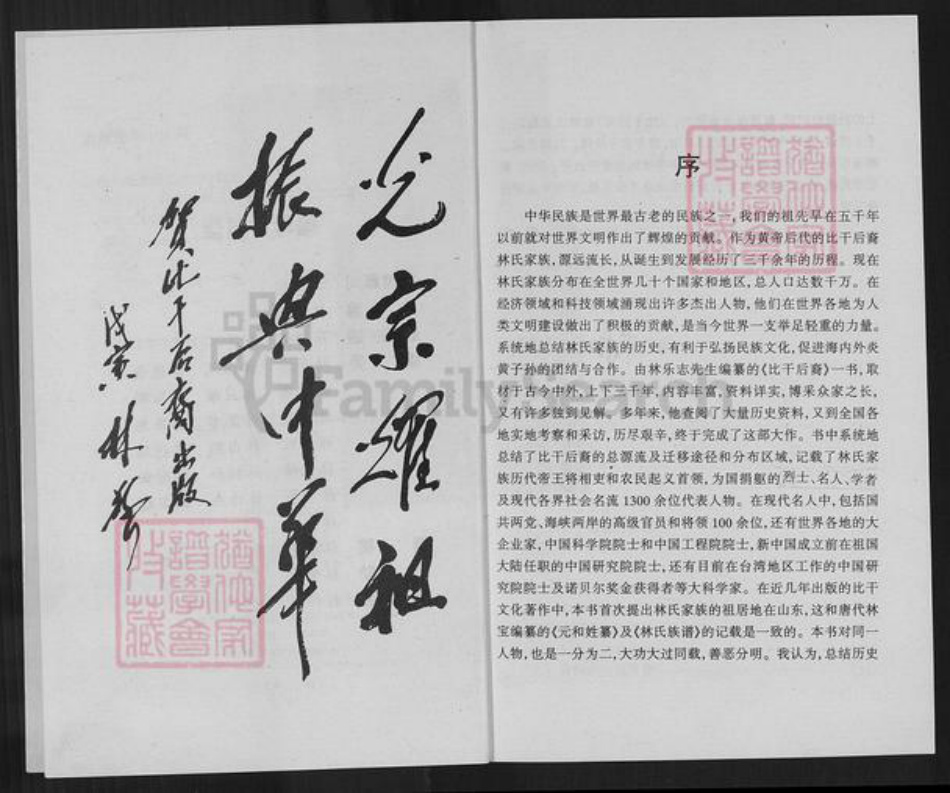 光宗耀祖
振兴中華
賀比干后裔出版
戊寅 林
序
中华民族是世界最古老的民族之一,我们的祖先早在五千年
以前就对世界文明作出了辉煌的贡献。作为黄帝后代的比干后裔
林氏家族,源远流长,从诞生到发展经历了三千余年的历程。现在
林氏家族分布在全世界几十个国家和地区,总人口达数千万。在
经济领域和科技领域涌现出许多杰出人物,他们在世界各地为人
类文明建设做出了积极的贡献,是当今世界一支举足轻重的力量。
系统地总结林氏家族的历史,有利于弘扬民族文化,促进海内外炎
黄子孙的团结与合作。由林乐志先生编纂的《比干后裔》一书,取
材于古今中外,上下三千年,内容丰富,资料详实,博采众家之长,
又有许多独到见解。多年来,他查阅了大量历史资料,又到全国各
地实地考察和采访,历尽艰辛,终于完成了这部大作。书中系统地
总结了比干后裔的总源流及迁移途径和分布区域,记载了林氏家
族历代帝王将相吏和农民起义首领,为国捐躯的烈士、名人、学者
及现代各界社会名流 1300 余位代表人物。在现代名人中,包括国
共两党、海峡两岸的高级官员和将领 100 余位,还有世界各地的大
企业家,中国科学院院士和中国工程院院士,新中国成立前在祖国
大陆任职的中国研究院院士,还有目前在台湾地区工作的中国研
究院院士及诺贝尔奖金获得者等大科学家。在近几年出版的比干
文化著作中,本书首次提出林氏家族的祖居地在山东,这和唐代林
宝编纂的《元和姓纂》及《林氏族谱》的记载是一致的。本书对同一
人物,也是一分为二,大功大过同载,善恶分明。我认为,总结历史
FamilySearch